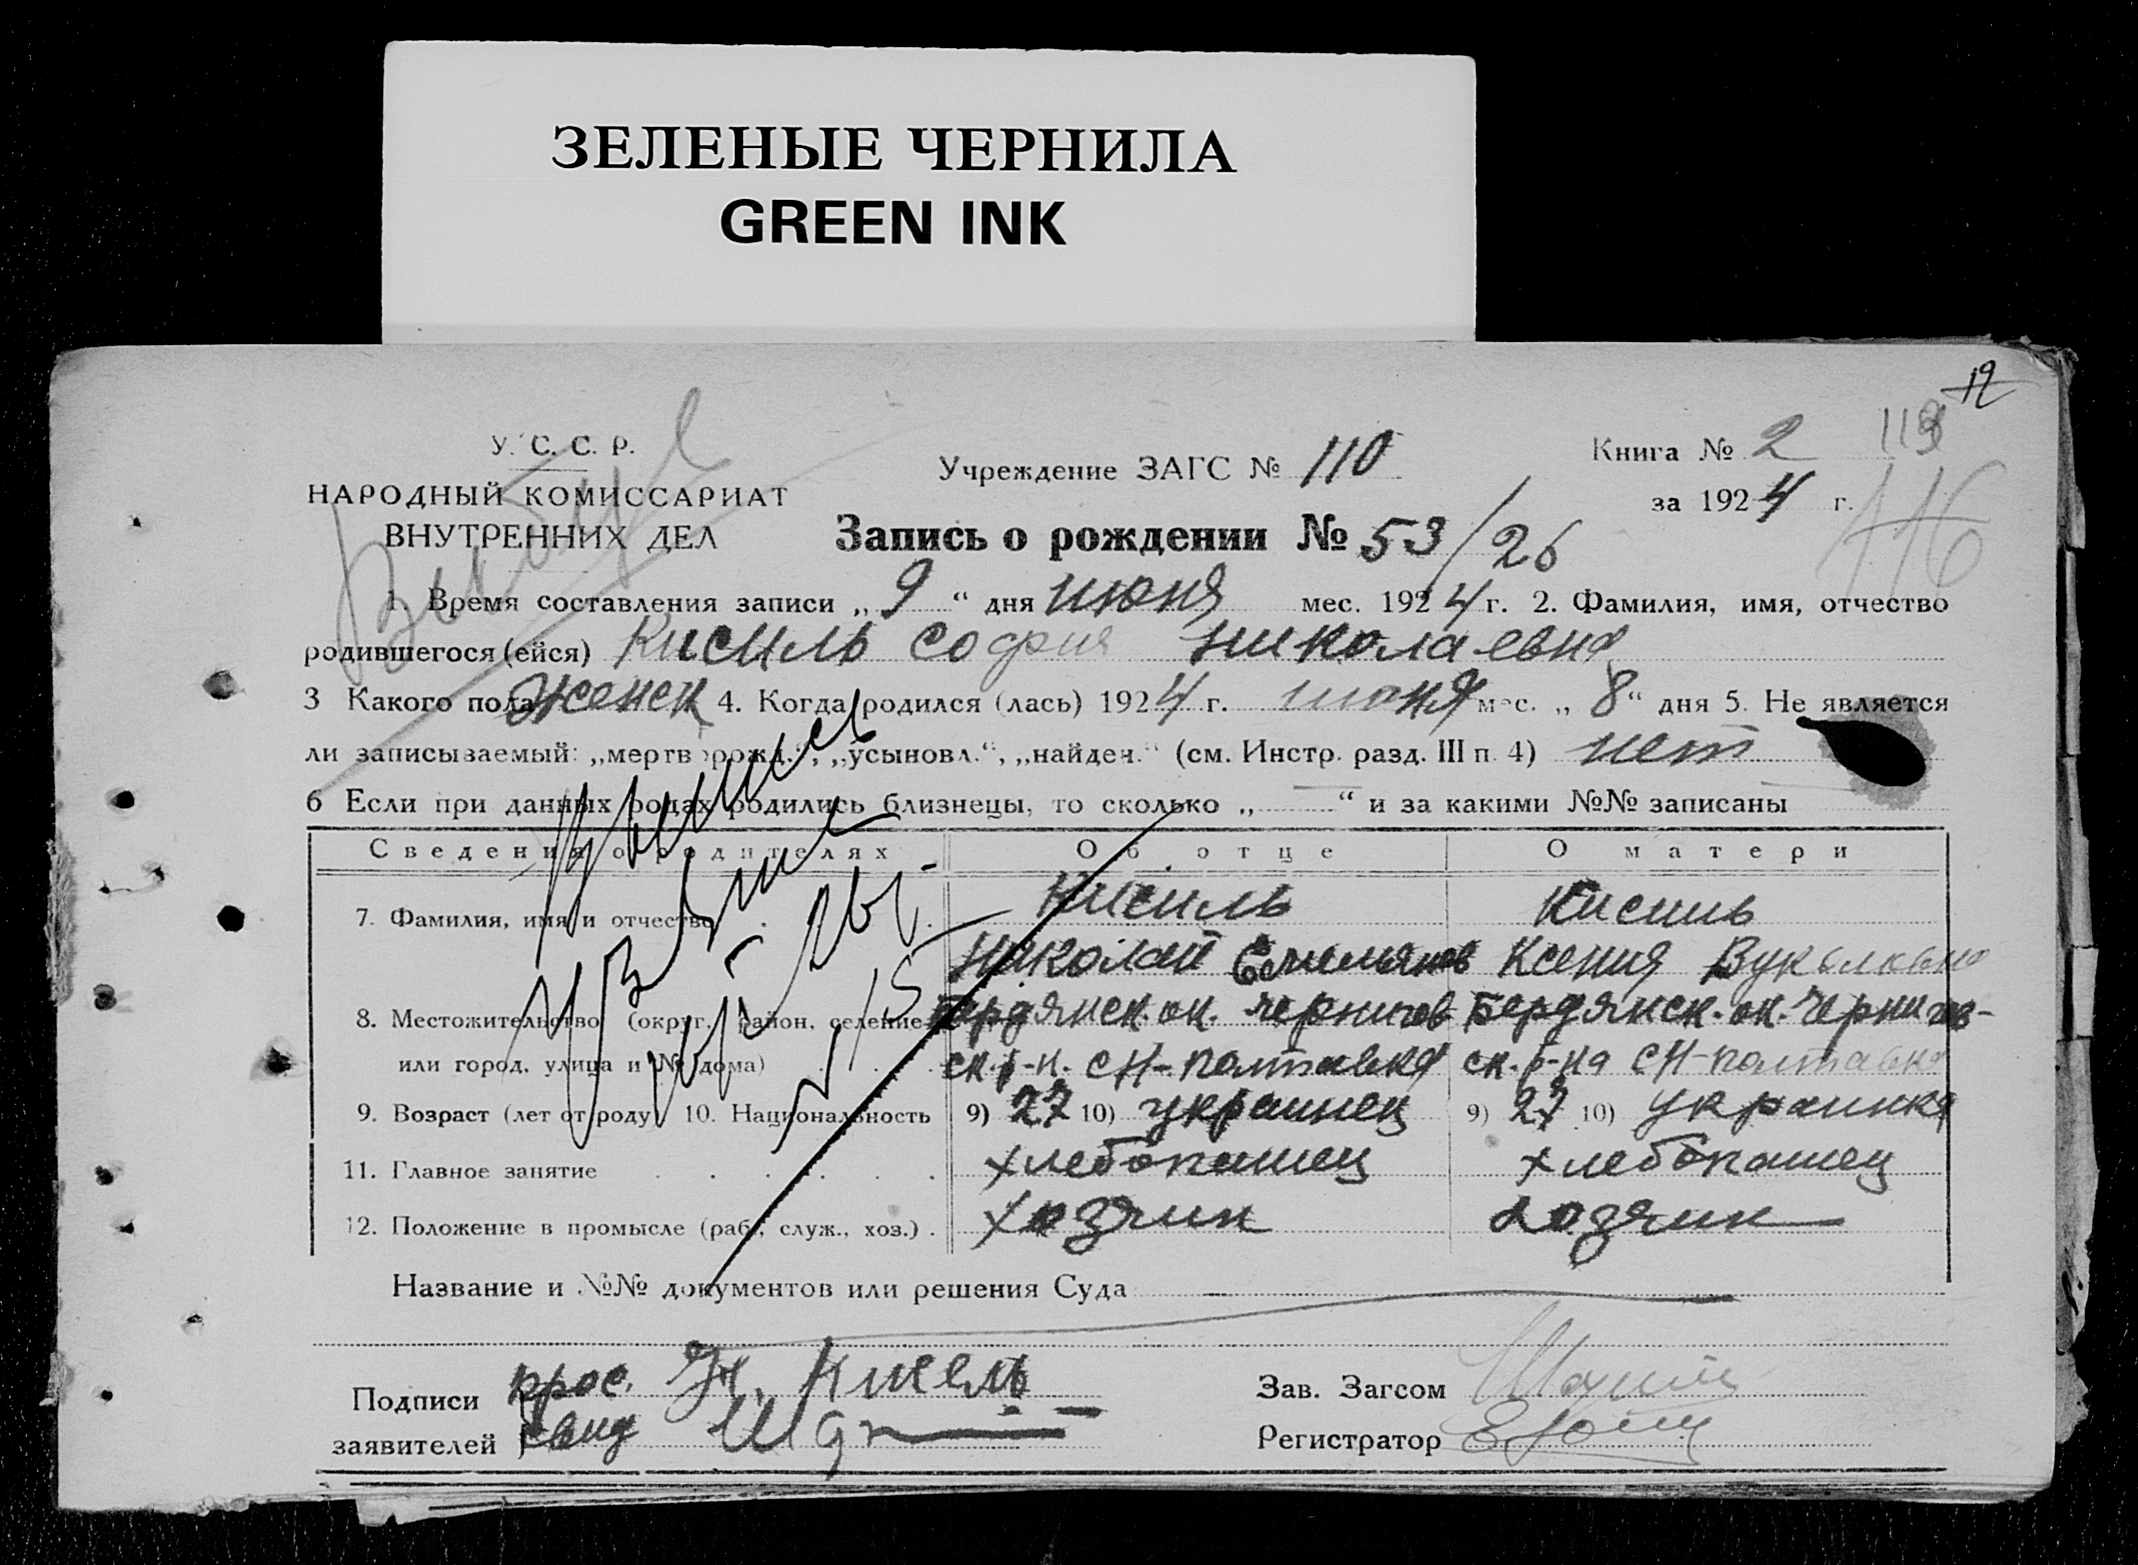 ЗЕЛЕНЫЕ ЧЕРНИЛА
GREEN INK
12
У. С. С. Р.
НАРОДНЫЙ КОМИССАРИАТ
ВНУТРЕННИХ ДЕЛ
Учреждение ЗАГС № 110
Книга № 2
за 1924 г.
116
Запись о рождении № 53/26
1. Время составления записи „ 9 “ дня июня мес. 1924 г. 2. Фамилия, имя, отчество
родившегося (ейся) Кисиль София Николаевна
3 Какого пола женск 4. Когда родился (лась) 1924 г. июня мес. „ 8 “ дня 5. Не является
ли записываемый: „мертворожд.“, „усыновл.“, „найден.“ (см. Инстр. разд. III п. 4) нет
6 Если при данных родах родились близнецы, то сколько „ — “ и за какими №№ записаны
Сведения о родителях Об отце О матери
7. Фамилия, имя и отчество Кисиль Кисиль
Николай Ксения
8. Местожительство (округ, район, селение Бердянск. ок. Чернигов Бердянск. ок. Чернигов-
или город, улица и № дома) ск. р-н. сН-Полтавка ск. р-на сН-Полтавка
9. Возраст (лет от роду) 10. Национальность 9) 27 10) украинец 9) 27 10) украинка
11. Главное занятие хлебопашец хлебопашец
12. Положение в промысле (раб., служ., хоз.) хозяин хозяин
Название и №№ документов или решения Суда
Подписи
заявителей
Кисель
Зав. Загсом
Регистратор